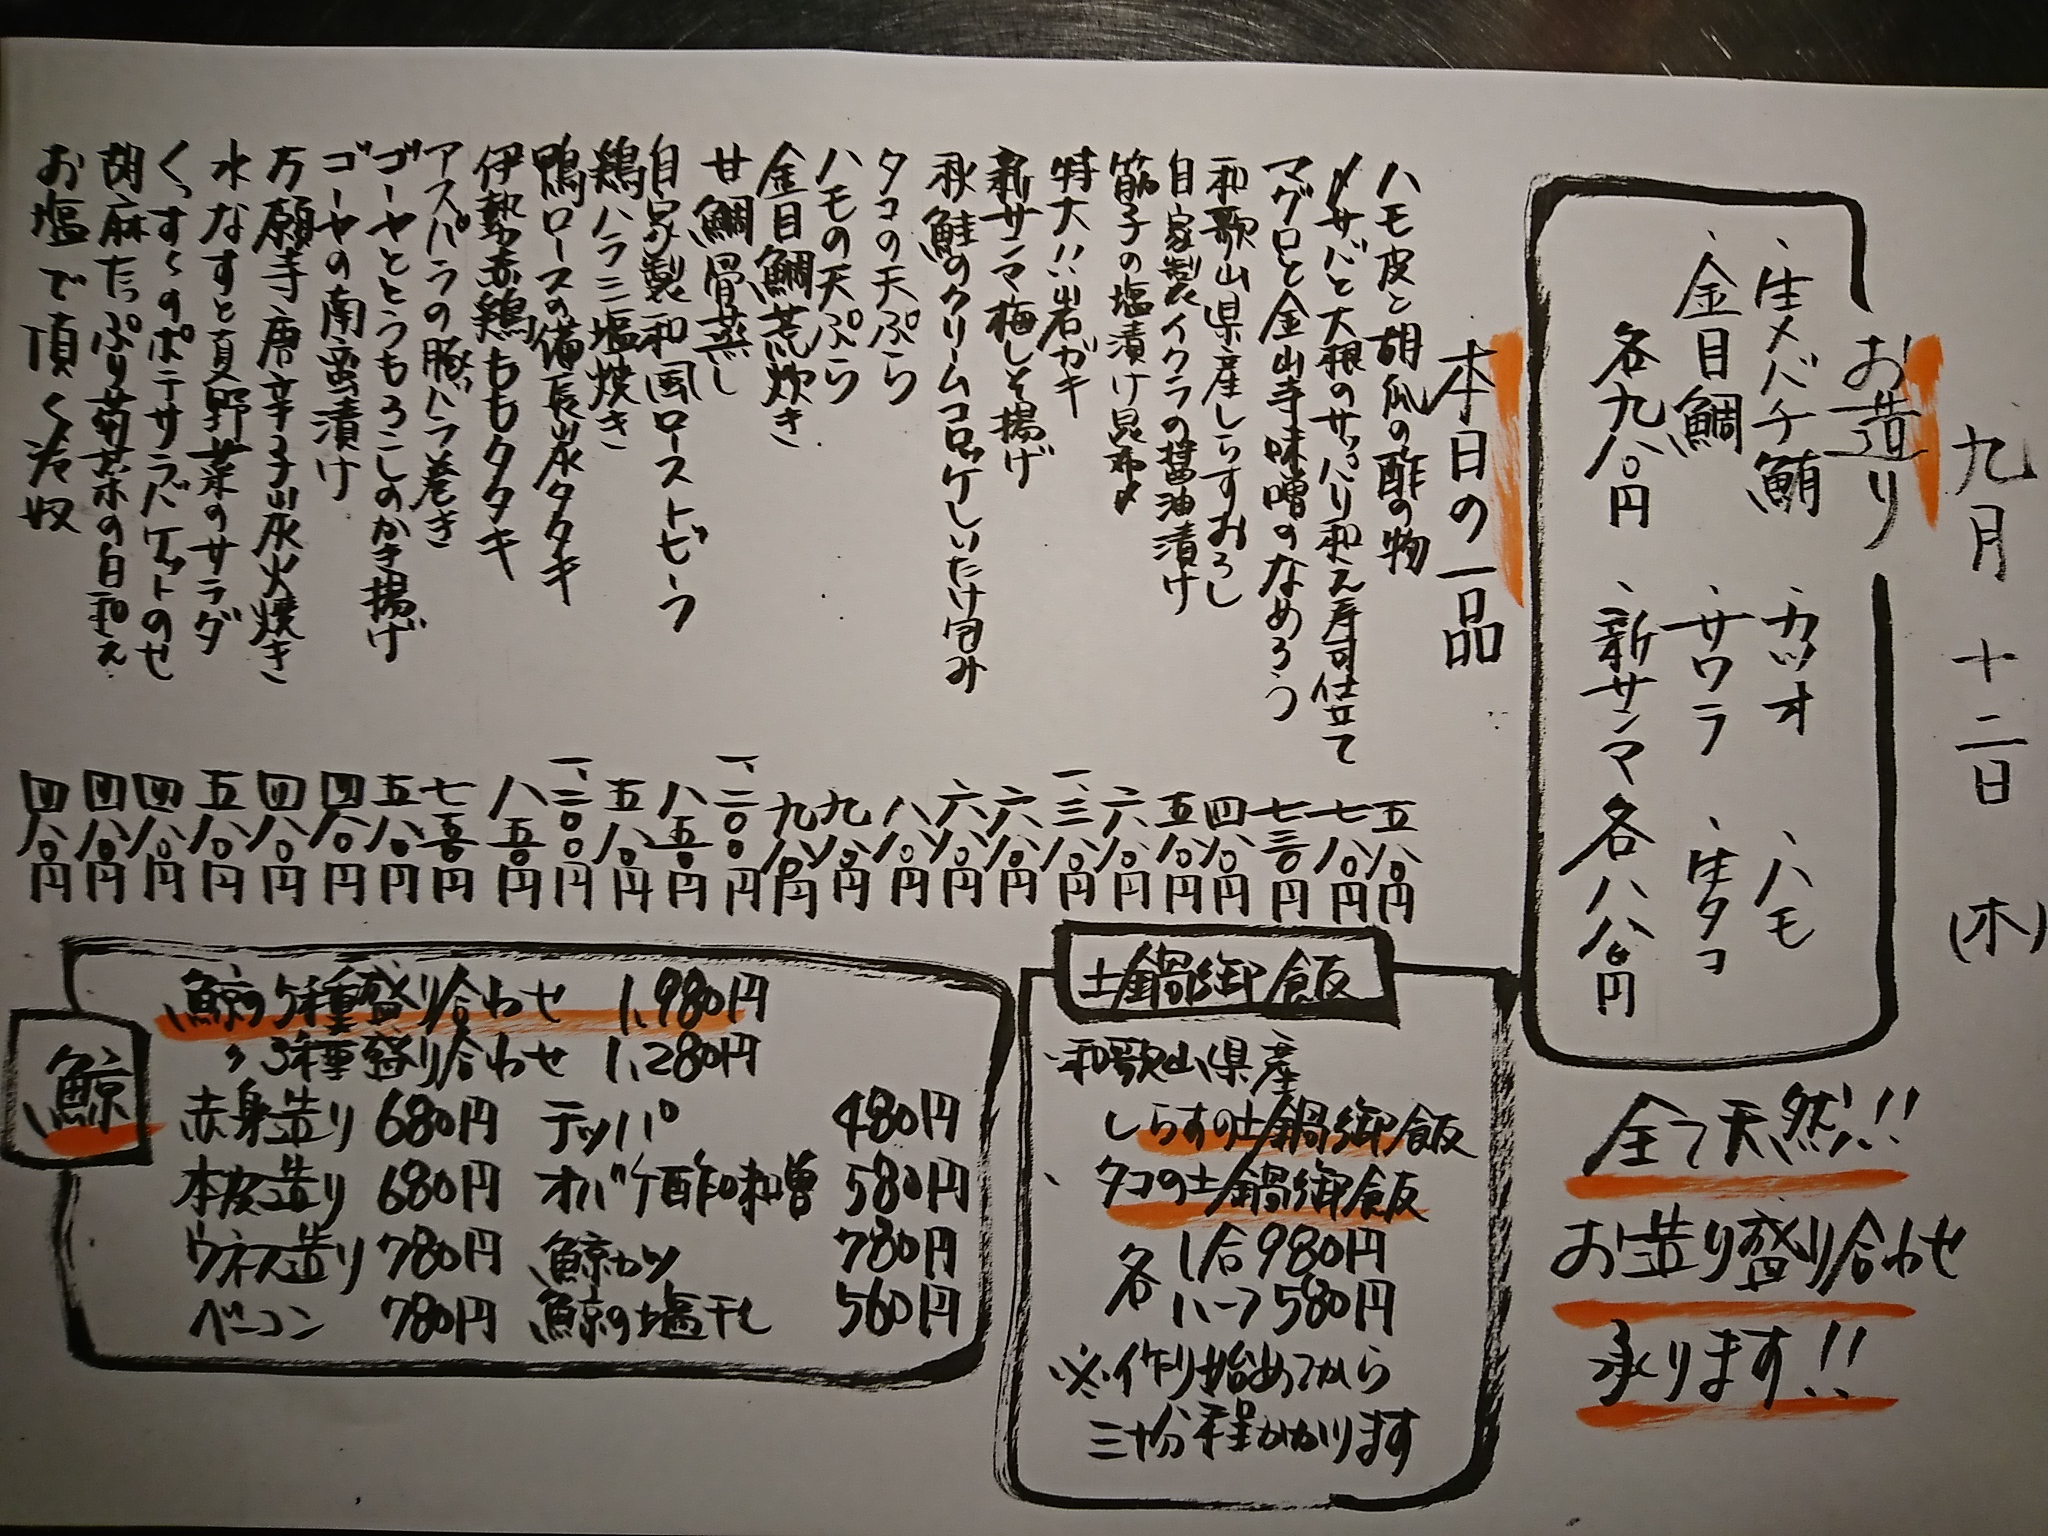 九月十二日(木)
お造り
、生メバチ鮪
、カツオ
、ハモ
、金目鯛
、サワラ
、生タコ
各九八〇円
、新サンマ
各八八〇円
全て天然!!
お造り盛り合わせ
承ります!!
本日の一品
ハモ皮と胡瓜の酢の物 五八〇円
〆サバと大根のサッパリ和え寿司仕立て 七八〇円
マグロと金山寺味噌のなめろう 七三〇円
和歌山県産しらすおろし 四八〇円
自家製イクラの醤油漬け 五八〇円
筋子の塩漬け昆布〆 六八〇円
特大!!岩ガキ 一、三八〇円
新サンマ梅しそ揚げ 六八〇円
秋鮭のクリームコロッケしいたけ包み 六八〇円
タコの天ぷら 八八〇円
ハモの天ぷら 九八〇円
金目鯛荒炊き 九八〇円
甘鯛骨蒸し 一、二〇〇円
自家製和風ローストビーフ 八五〇円
鶏ハラミ塩焼き 五八〇円
鴨ロースの備長炭タタキ 一、二〇〇円
伊勢赤鶏ももタタキ 八五〇円
アスパラの豚バラ巻き 七五〇円
ゴーヤととうもろこしのかき揚げ 五八〇円
ゴーヤの南蛮漬け 四八〇円
万願寺唐辛子炭火焼き 四八〇円
水なすと夏野菜のサラダ 五八〇円
くっすくのポテサラバケットのせ 四八〇円
胡麻たっぷり菊菜の白和え 四八〇円
お塩で頂く冷奴 四八〇円
土鍋御飯
、和歌山県産
しらすの土鍋御飯
、タコの土鍋御飯
各 1合980円
ハーフ580円
※作り始めてから
三十分程かかります
鯨
鯨の5種盛り合わせ 1,980円
〃 3種盛り合わせ 1,280円
赤身造り 680円 テッパ 480円
本皮造り 680円 オバケ酢味噌 580円
ウネス造り 780円 鯨カツ 780円
ベーコン 780円 鯨の塩干し 560円